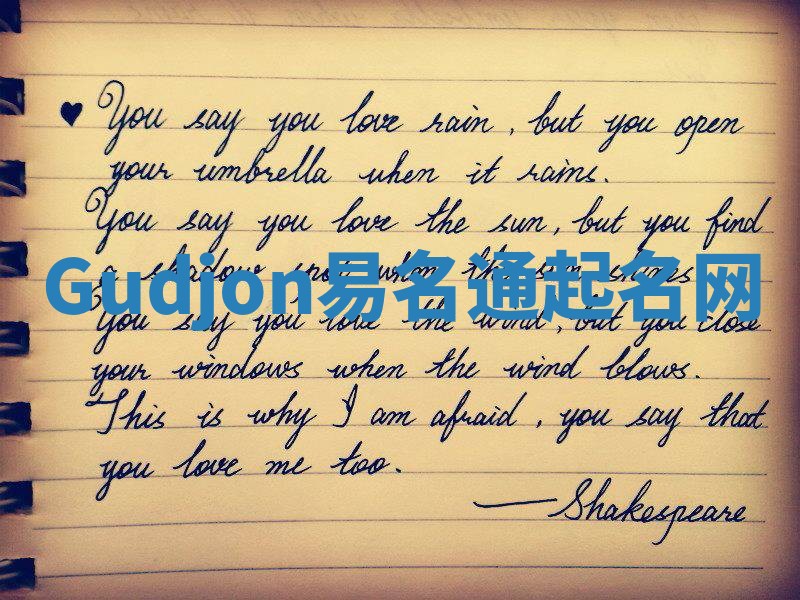 ♥ You say you love rain, but you open
your umbrella when it rains.
You say you love the sun, but you find
a shadow spot when the sun shines
Gudjon易名通起名网
You say you love the wind, but you close
your windows when the wind blows.
This is why I am afraid, you say that
you love me too.
—Shakespeare